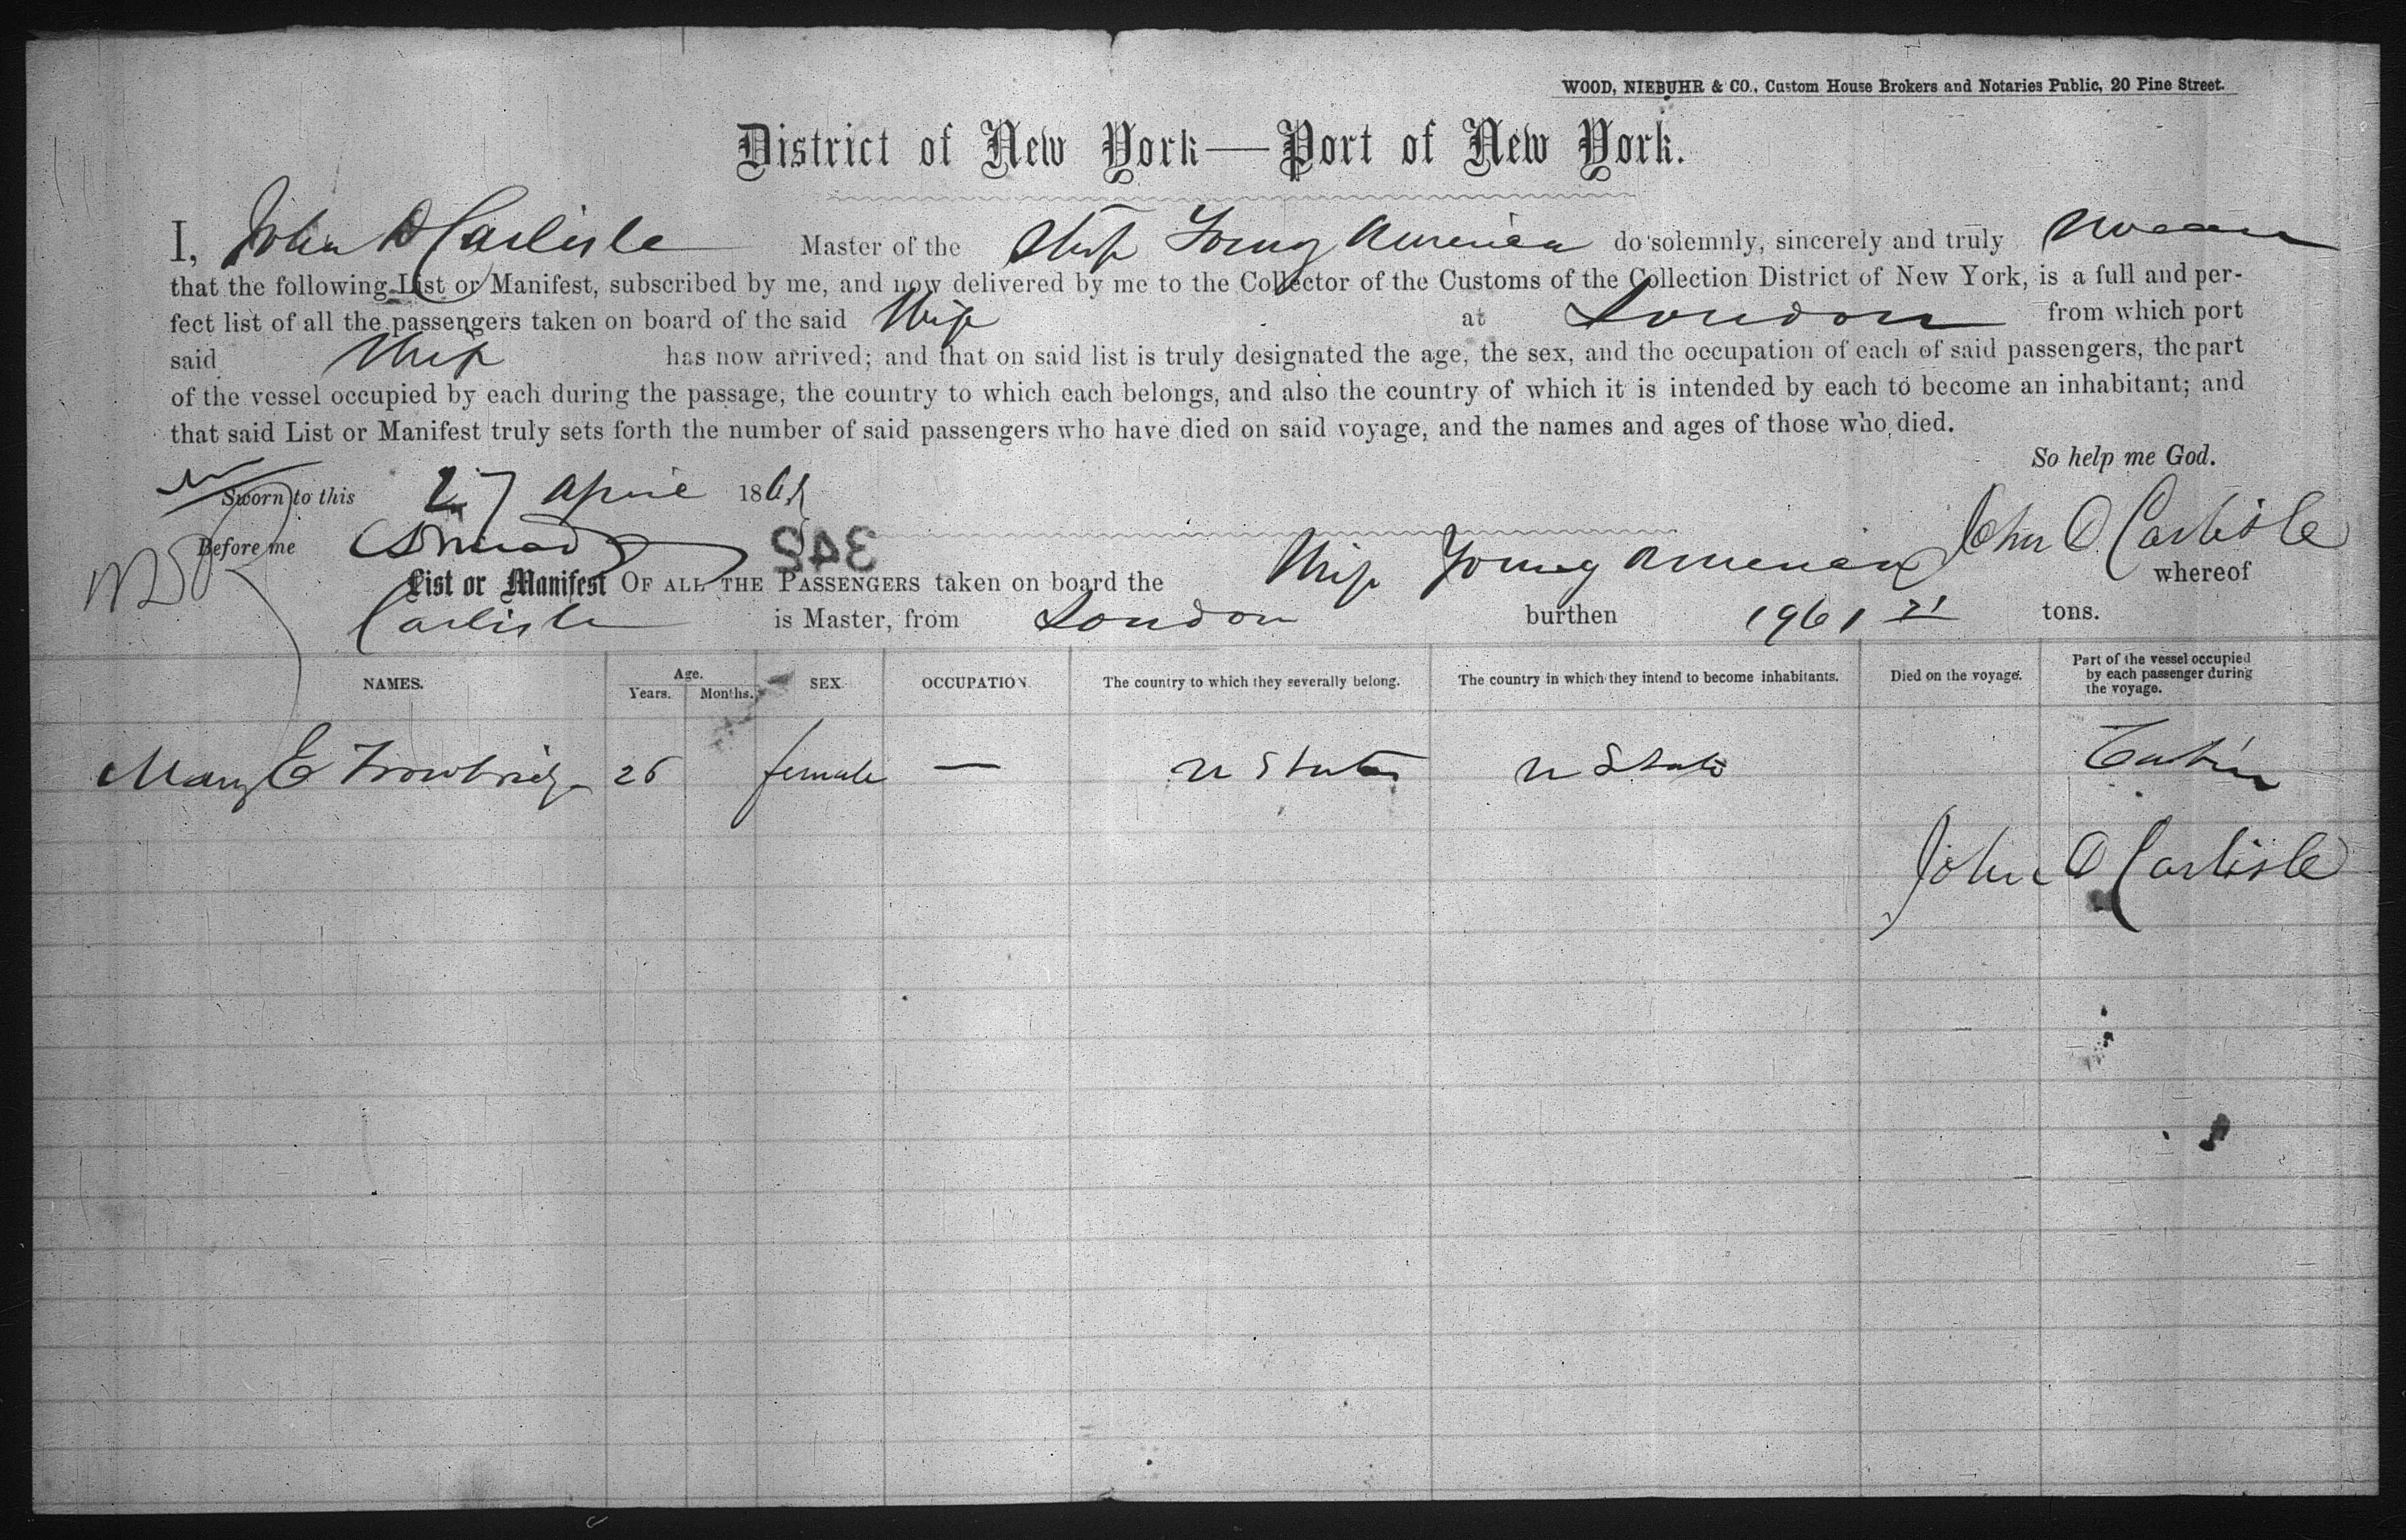 WOOD, NIEBUHR & CO., Custom House Brokers and Notaries Public, 20 Pine Street.
District of New York—Port of New York.
I, John D Carlisle Master of the Ship Young America do solemnly, sincerely and truly swear
that the following List or Manifest, subscribed by me, and now delivered by me to the Collector of the Customs of the Collection District of New York, is a full and per-
fect list of all the passengers taken on board of the said Ship at London from which port
said Ship has now arrived; and that on said list is truly designated the age, the sex, and the occupation of each of said passengers, the part
of the vessel occupied by each during the passage, the country to which each belongs, and also the country of which it is intended by each to become an inhabitant; and
that said List or Manifest truly sets forth the number of said passengers who have died on said voyage, and the names and ages of those who died.
So help me God.
Sworn to this 27 April 186
John D Carlisle
Before me
342
List or Manifest OF ALL THE PASSENGERS taken on board the Ship Young America whereof
Carlisle is Master, from London burthen 1961 tons.
NAMES. Age. Years. Months. SEX. OCCUPATION. The country to which they severally belong. The country in which they intend to become inhabitants. Died on the voyage. Part of the vessel occupied by each passenger during the voyage.
Mary E Trowbridge 26 female — U States U States Cabin
John D Carlisle